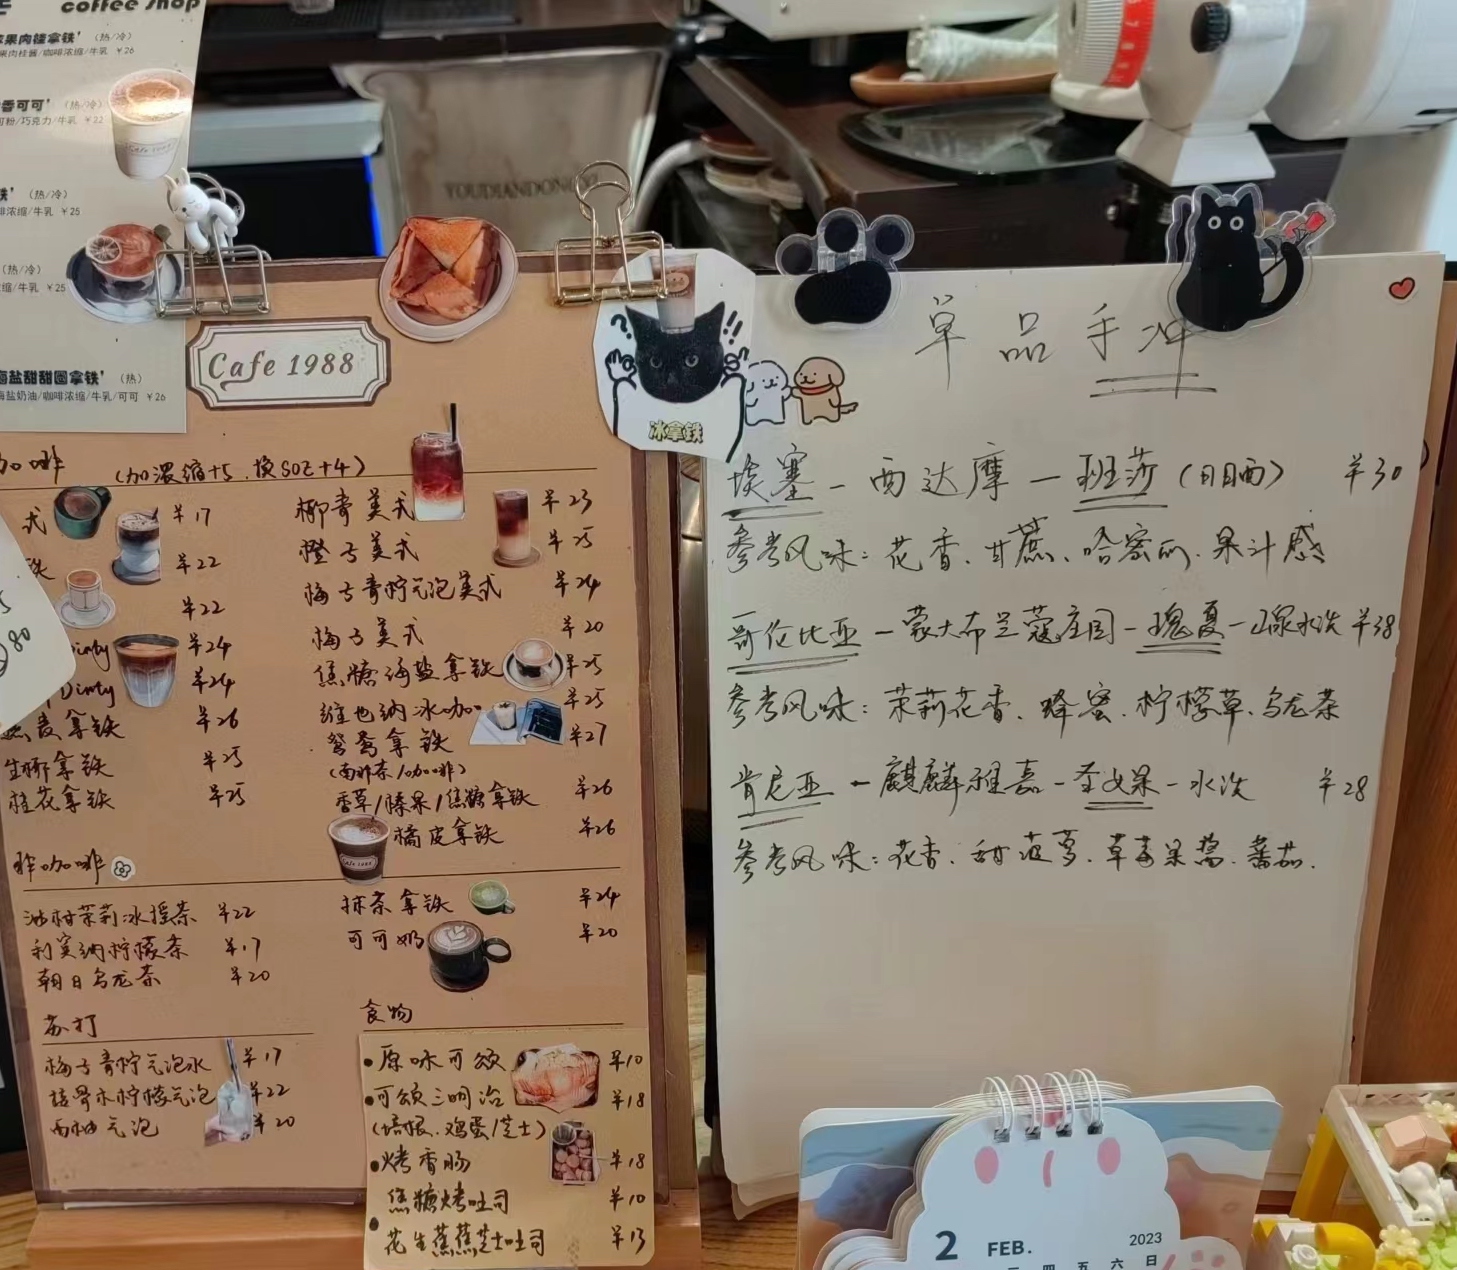 coffee shop
果肉桂拿铁' (热/冷)
果肉桂酱/咖啡浓缩/牛乳 ¥26
香可可' (热/冷)
可粉/巧克力/牛乳 ¥22
铁' (热/冷)
啡浓缩/牛乳 ¥25
(热/冷)
缩/牛乳 ¥25
海盐甜甜圈拿铁' (热)
海盐奶油/咖啡浓缩/牛乳/可可 ¥26
YOUDIANDONGXI
Cafe 1988
冰拿铁
咖啡 (加浓缩+5、换SOE+4)
式 ¥17
铁 ¥22
¥22
Dirty ¥24
Dirty ¥24
燕麦拿铁 ¥26
生椰拿铁 ¥25
桂花拿铁 ¥25
椰青美式 ¥23
橙子美式 ¥25
梅子青柠气泡美式 ¥24
梅子美式 ¥20
焦糖海盐拿铁 ¥25
维也纳冰咖 ¥25
鸳鸯拿铁 ¥27
(南非茶/咖啡)
香草/榛果/焦糖拿铁 ¥26
橘皮拿铁 ¥26
非咖啡
油柑茉莉冰摇茶 ¥22
利宾纳柠檬茶 ¥17
朝日乌龙茶 ¥20
抹茶拿铁 ¥24
可可奶 ¥20
苏打
梅子青柠气泡水 ¥17
接骨木柠檬气泡 ¥22
西柚气泡 ¥20
食物
原味可颂 ¥10
可颂三明治 ¥18
(培根、鸡蛋/芝士)
烤香肠 ¥18
焦糖烤吐司 ¥10
花生蕉蕉芝士吐司 ¥13
80
单品手冲
埃塞-西达摩-班莎(日晒) ¥30
参考风味:花香、甘蔗、哈密瓜、果汁感
哥伦比亚-蒙大布兰蔻庄园-瑰夏-水洗 ¥38
参考风味:茉莉花香、蜂蜜、柠檬草、乌龙茶
肯尼亚-麒麟雅嘉-圣女果-水洗 ¥28
参考风味:花香、甜菠萝、草莓果酱、蕃茄.
2 FEB. 2023
四 五 六 日